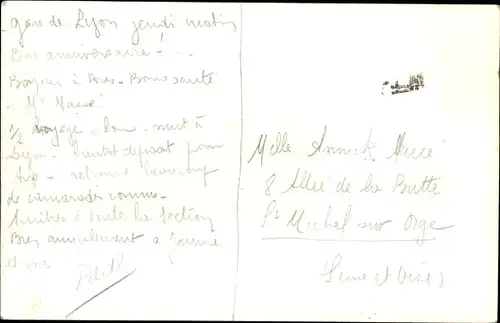 gare de Lyon jeudi matin
Bon anniversaire - - -
Bonjour à tous - Bonne santé
à Mr Masse!
1/2 voyage = bon - nuit à
Lyon - bientôt départ pour
- retrouvé beaucoup
de camarades connus -
Amitiés à toute la Section
Bien amicalement à
et
Melle Annick
8 Allée de la Butte
St Michel sur Orge
(Seine et Oise)